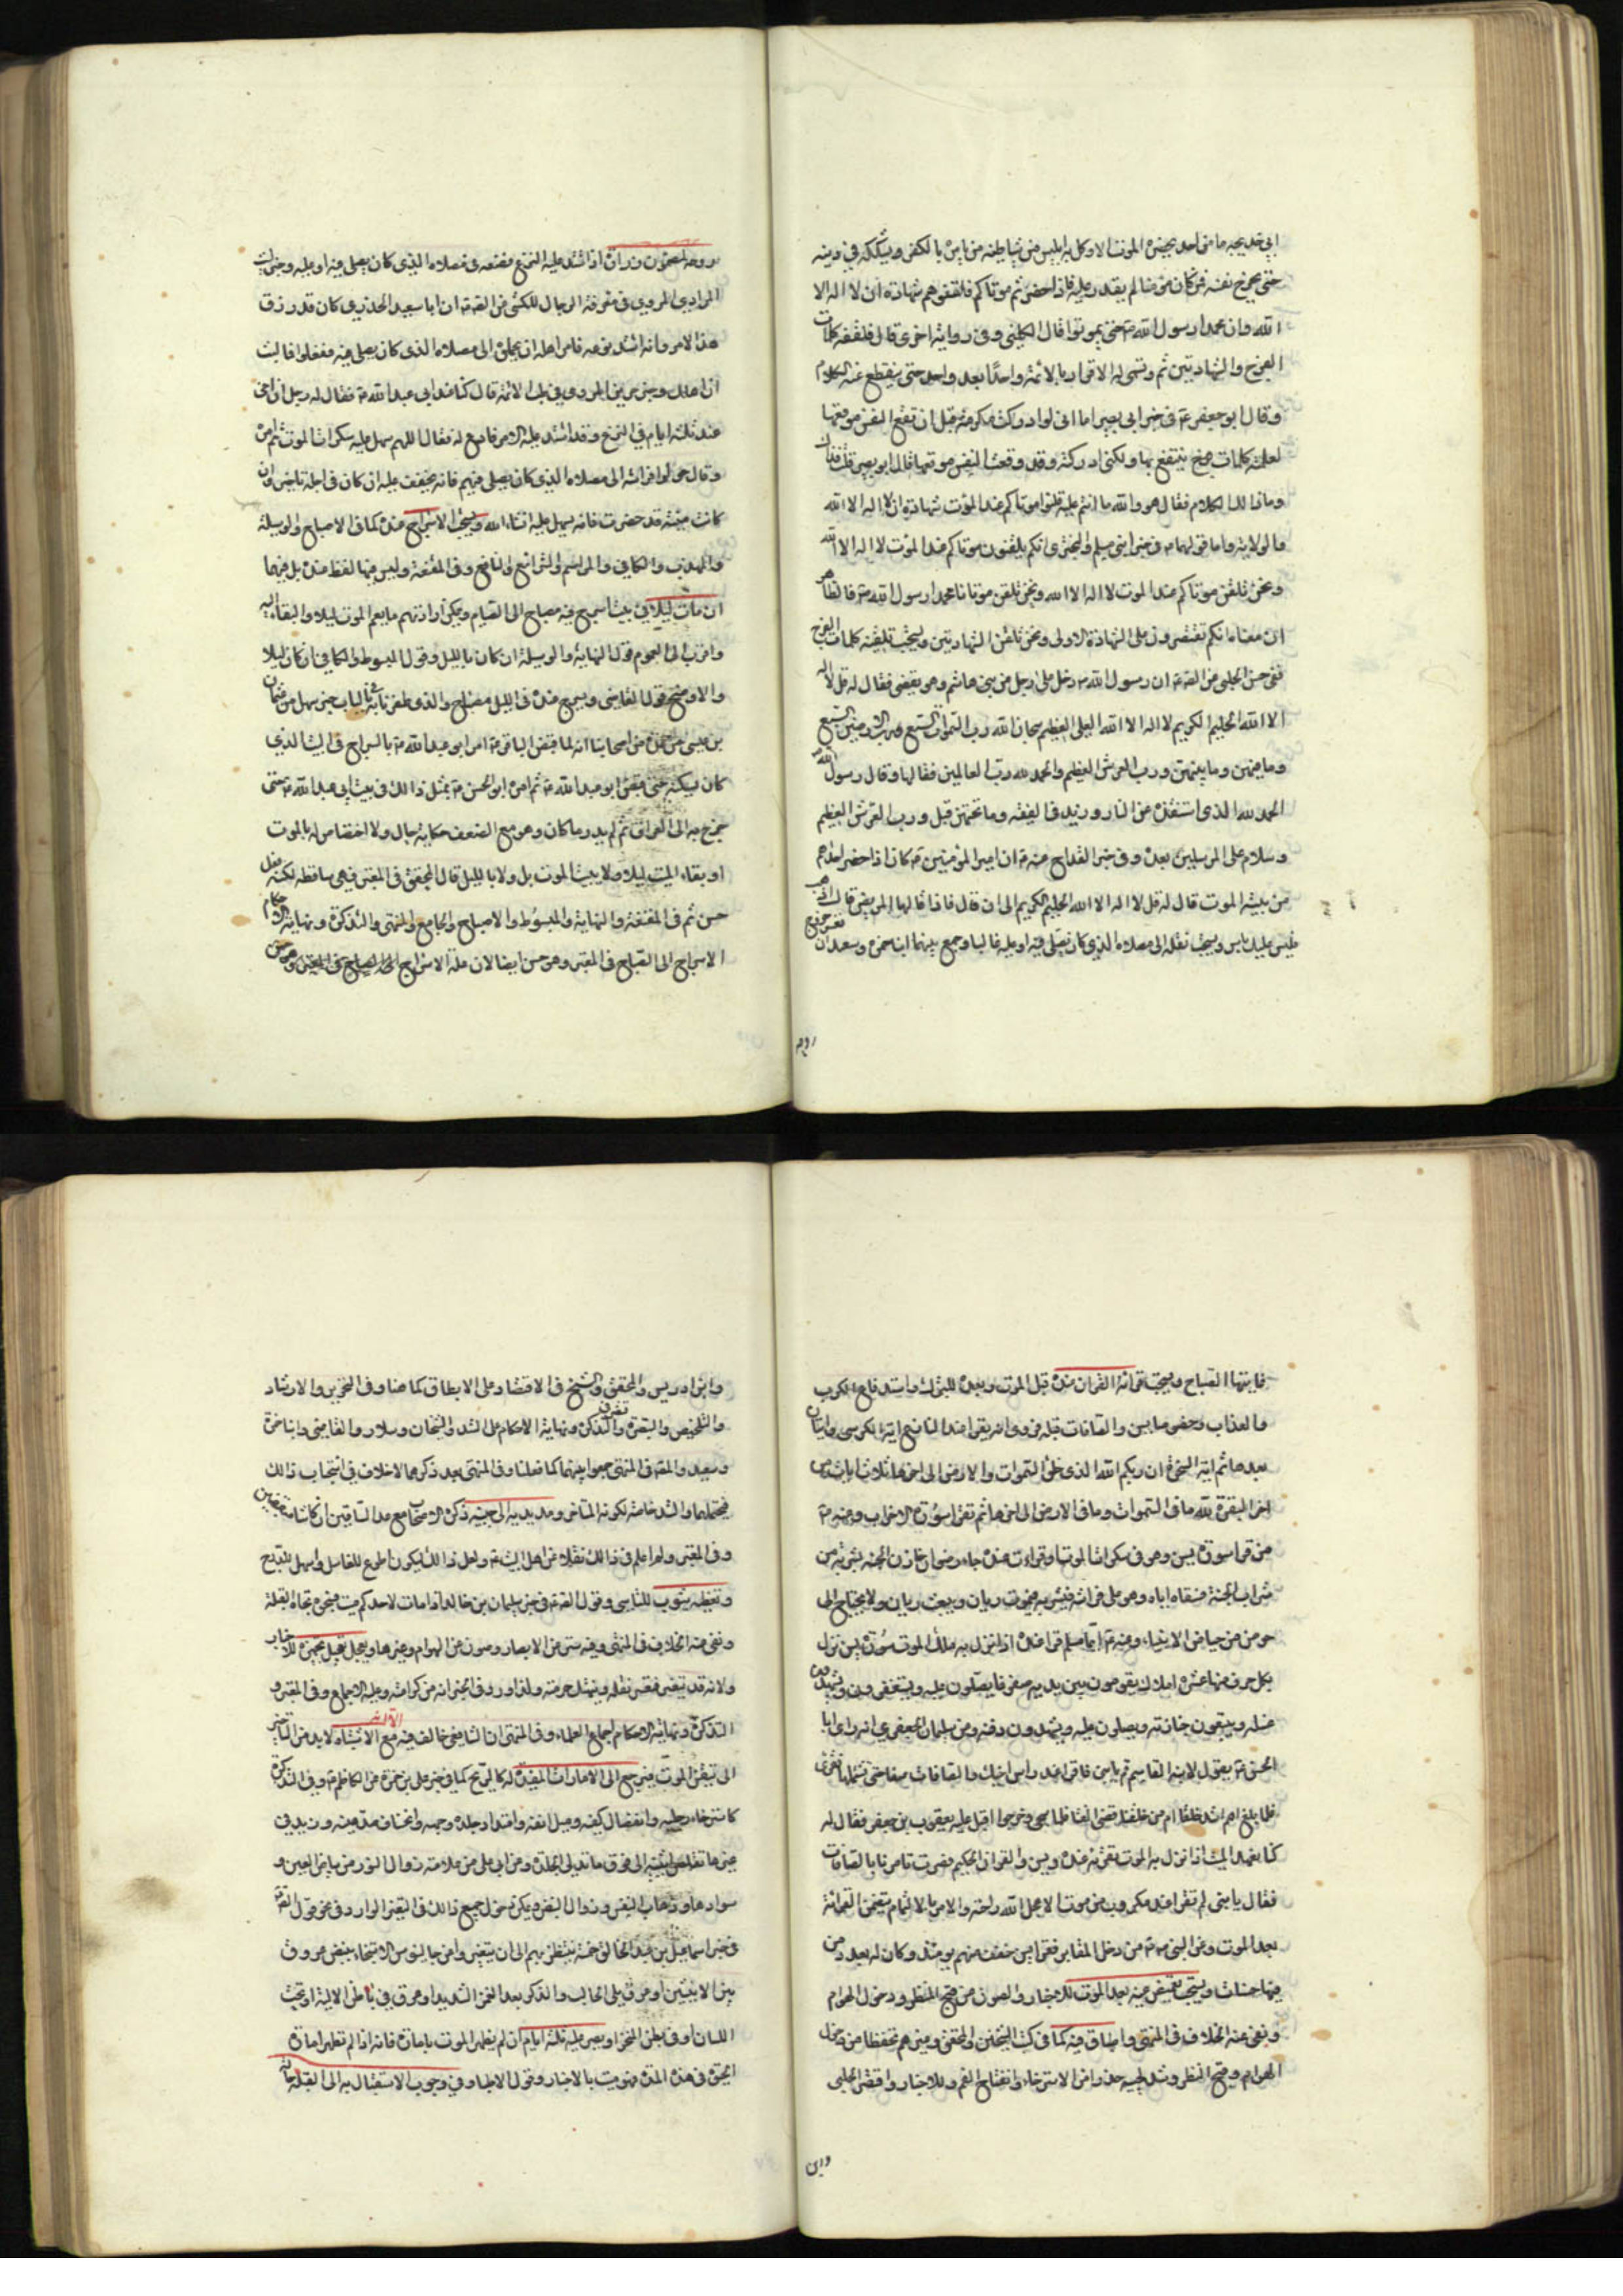 ابي خديجة ما من احد يحضره الموت الا وكل به ابليس من شياطينه من يامره بالكفر ويشككه في دينه
حتى يخرج نفسه فمن كان مؤمنا لم يقدر عليه فاذا حضرتم موتاكم فلقنوهم شهادة ان لا اله الا
الله وان محمدا رسول الله ص حتى يموتوا قال الكليني وفي رواية اخرى قال فلقنه كلمات
الفرج والشهادتين ثم وتسمى له الاقرار بالائمة واحدا بعد واحد حتى ينقطع عنه الكلام
وقال ابو جعفر ع في خبر ابي بصير اما اني لو ادركت عكرمة قبل ان تقع النفس موقعها
لعلمته كلمات ينتفع بها ولكني ادركته وقد وقعت النفس موقعها قال ابو بصير قلت
وما ذلك الكلام فقال هو والله ما انتم عليه فلقنوا موتاكم عند الموت شهادة ان لا اله الا الله
والولاية واما قولهما ع في خبر ابني مسلم والبختري انكم تلقنون موتاكم عند الموت لا اله الا الله
ونحن نلقن موتاكم عند الموت لا اله الا الله ونحن نلقن موتانا محمد رسول الله ص فالظاهر
ان معناه انكم تقتصرون على الشهادة الاولى ونحن نلقن الشهادتين ويستحب تلقينه كلمات الفرج
ففي حسن الحلبي عن الصادق ع ان رسول الله ص دخل على رجل من بني هاشم وهو يقضي فقال له قل لا اله
الا الله الحليم الكريم لا اله الا الله العلي العظيم سبحان الله رب السموات السبع ورب الارضين السبع
وما فيهن وما بينهن ورب العرش العظيم والحمد لله رب العالمين فقالها وقال رسول الله
الحمد لله الذي استنقذه من النار وزيد في الفقيه وما تحتهن قبل ورب العرش العظيم
وسلام على المرسلين بعده وفي خبر القداح عنه ع ان امير المؤمنين ع كان اذا حضر احدا
من بيته الموت قال له قل لا اله الا الله الحليم الكريم الى ان قال فاذا قالها المريض قال اذهب
فليس عليك باس ويستحب نقله الى مصلاه الذي كان يصلي فيه او عليه غالبا وجمع بينهما ابنا حمزة وسعيد ان
تعسر خروج
روحه
روحه لمضمون زرارة اذا اشتد عليه النزع فضعه في مصلاه الذي كان يصلي فيه او عليه وخبر ليث
المرادي المروي في معرفة الرجال للكشي عن الصادق ع ان ابا سعيد الخدري كان قد رزق
هذا الامر وانه اشتد نزعه فامر اهله ان يحملوه الى مصلاه الذي كان يصلي فيه ففعلوا فما لبث
ان هلك وخبر حريز المروي في طب الائمة قال كنا عند ابي عبد الله ع فقال له رجل ان اخي
منذ ثلثة ايام في النزع وقد اشتد عليه الامر فادع له فقال اللهم سهل عليه سكرات الموت ثم امره
وقال حولوا فراشه الى مصلاه الذي كان يصلي فيه فانه يخفف عليه ان كان في اجله تاخير وان
كانت منيته قد حضرت فانه يسهل عليه انشاء الله ويستحب الاسراج عنده كما في الاصباح والوسيلة
والمهذب والكافي والمراسم والشرائع والنافع وفي المقنعة وليس فيها لفظ عنده بل فيها
ان مات ليلا في بيت اسرج فيه مصباح الى الصباح ويمكن ارادتهم ما يعم الموت ليلا والبقاء اليه
واقرب الى العموم قول النهاية والوسيلة ان كان بالليل وقول المبسوط والكافي ان كان ليلا
والاوضح قول القاضي ويسرج عنده في الليل مصباح والذي ظفرنا به في الباب خبر سهل عن عثمان
بن عيسى عن عدة من اصحابنا انه لما قبض الباقر ع امر ابو عبد الله ع بالسراج في البيت الذي
كان يسكنه حتى قبض ابو عبد الله ع ثم امر ابو الحسن ع بمثل ذلك في بيت ابي عبد الله ع حتى
خرج به الى العراق ثم لم يدر ما كان وهو مع الضعف حكاية حال ولا اختصاص له بالموت
او بقاء الميت ليلا ولا ببيت الموت بل ولا بالليل قال المحقق في المعتبر فهي ساقطة لكنه فعل
حسن ثم في المقنعة والنهاية والمبسوط والاصباح والجامع والمنتهى والتذكرة ونهاية الاحكام
الاسراج الى الصباح في المعتبر وهو حسن ايضا لان علة الاسراج
فايتها الصباح ويستحب قرائة القران عنده قبل الموت وبعده للتبرك واستدفاع الكرب
والعذاب وخصوصا يس والصافات قبله فروي انه يقرا عند النازع اية الكرسي وايتان
بعدها ثم اية السخرة ان ربكم الله الذي خلق السموات والارض الى اخرها ثم ثلاث ايات من
اخر البقرة لله ما في السموات وما في الارض الى اخرها ثم تقرا سورة الاحزاب وعنه ع
من قرا سورة يس وهو في سكرات الموت او قراءت عنده جاء رضوان خازن الجنة بشربة من
شراب الجنة فسقاه اياه وهو على فراشه فيشربه فيموت ريان ويبعث ريان ولا يحتاج الى
حوض من حياض الانبياء وعنه ع ايما مسلم قرا عنده اذا نزل به ملك الموت سورة يس نزل
بكل حرف منها عشرة املاك يقومون بين يديه صفوفا يصلون عليه ويستغفرون ويشهدون
غسله ويتبعون جنازته ويصلون عليه ويشهدون دفنه وعن سليمان الجعفري انه راى ابا
الحسن ع يقول لابنه القاسم قم يا بني فاقرا عند راس اخيك والصافات صفا حتى تستتمها فقرا
فلما بلغ اهم اشد خلقا ام من خلقنا قضى الفتى فلما سجي وخرجوا اقبل عليه يعقوب بن جعفر فقال له
كنا نعهد الميت اذا نزل به الموت تقرا عنده يس والقران الحكيم فصرت تامرنا بالصافات
فقال يا بني لم تقرا عند مكروب من موت الا عجل الله راحته والامر بالاتمام يتضمن القرائة
بعد الموت وعن النبي ص من دخل المقابر فقرا يس خفف عنهم يومئذ وكان له بعدد من
فيها حسنات ويستحب تغميض عينيه بعد الموت للاخبار والصون عن قبح المنظر ودخول الهوام
ونفي عنه الخلاف في المنتهى واطباق فيه كما في كتب الشيخين والمحقق وغيرهم تحفظا من دخول
الهوام وقبح المنظر وشد لحييه حذرا من الاسترخاء وانفتاح الفم وللاخبار واقتصر الحلبي
وابن
وابن ادريس والمحقق والشيخ في الاقتصاد على الاطباق كما هنا وفي التحرير والارشاد
والتلخيص والتبصرة والتذكرة ونهاية الاحكام على الشد والشيخان وسلار والقاضي وابنا حمزة
وسعيد والمصنف في المنتهى جمعوا بينهما كما فعلنا وفي المنتهى بعد ذكرهما لا خلاف في استحباب ذلك
فيحتملهما والشد خاصة لكونه المتاخر ومد يديه الى جنبيه ذكره الاصحاب مع مد الساقين ان كانتا منقبضتين
وفي المعتبر ولم اعلم في ذلك نقلا عن اهل البيت ع ولعل ذلك ليكون اطوع للغاسل واسهل للدرج
وتغطيته بثوب للتاسي وقول الصادق ع في خبر سليمان بن خالد اذا مات لاحدكم ميت فسجوه تجاه القبلة
ونفي عنه الخلاف في المنتهى وفيه ستر عن الابصار وصون عن الهوام وغيرها ويعجل تجهيزه للاخبار
ولانه قد يتغير فيعسر نقله وينهتك حرمته ولما ورد في الخبر انه من كرامته وعليه الاجماع وفي المعتبر و
التذكرة ونهاية الاحكام اجماع العلماء وفي المنتهى ان الشافعي خالف فيه مع الاشتباه لا بد من التاخير
الى تيقن الموت فيرجع الى الامارات المفيدة له كالريح كما في خبر علي بن ابي حمزة عن الكاظم ع وفي التذكرة
كاسترخاء رجليه وانفصال كفيه وميل انفه وامتداد جلدة وجهه وانخساف صدغيه وزيد في
غيرها تقلص انثييه الى فوق مع تدلي الجلدة وعن ابي علي من علامته زوال النور من بياض العين و
سوادها وذهاب النفس وزوال النبض ويمكن دخول جميع ذلك في التغير الوارد في نحو قول الصادق
في خبر اسماعيل بن عبد الخالق خمسة ينتظر بهم الى ان يتغيروا وعن جالينوس الاستبراء بنبض عروق
بين الانثيين او عرق يلي الحالب والذكر بعد الغمز الشديد او عرق في باطن الالية او تحت
اللسان او في بطن المنخر او يصبر عليه ثلثة ايام ان لم يظهر الموت بامارة فانه اذا لم تظهر امارة
الحيوة في هذه المدة فهو ميت بالاخبار وقول الاخبار وفي وجوب الاستقبال به الى القبلة